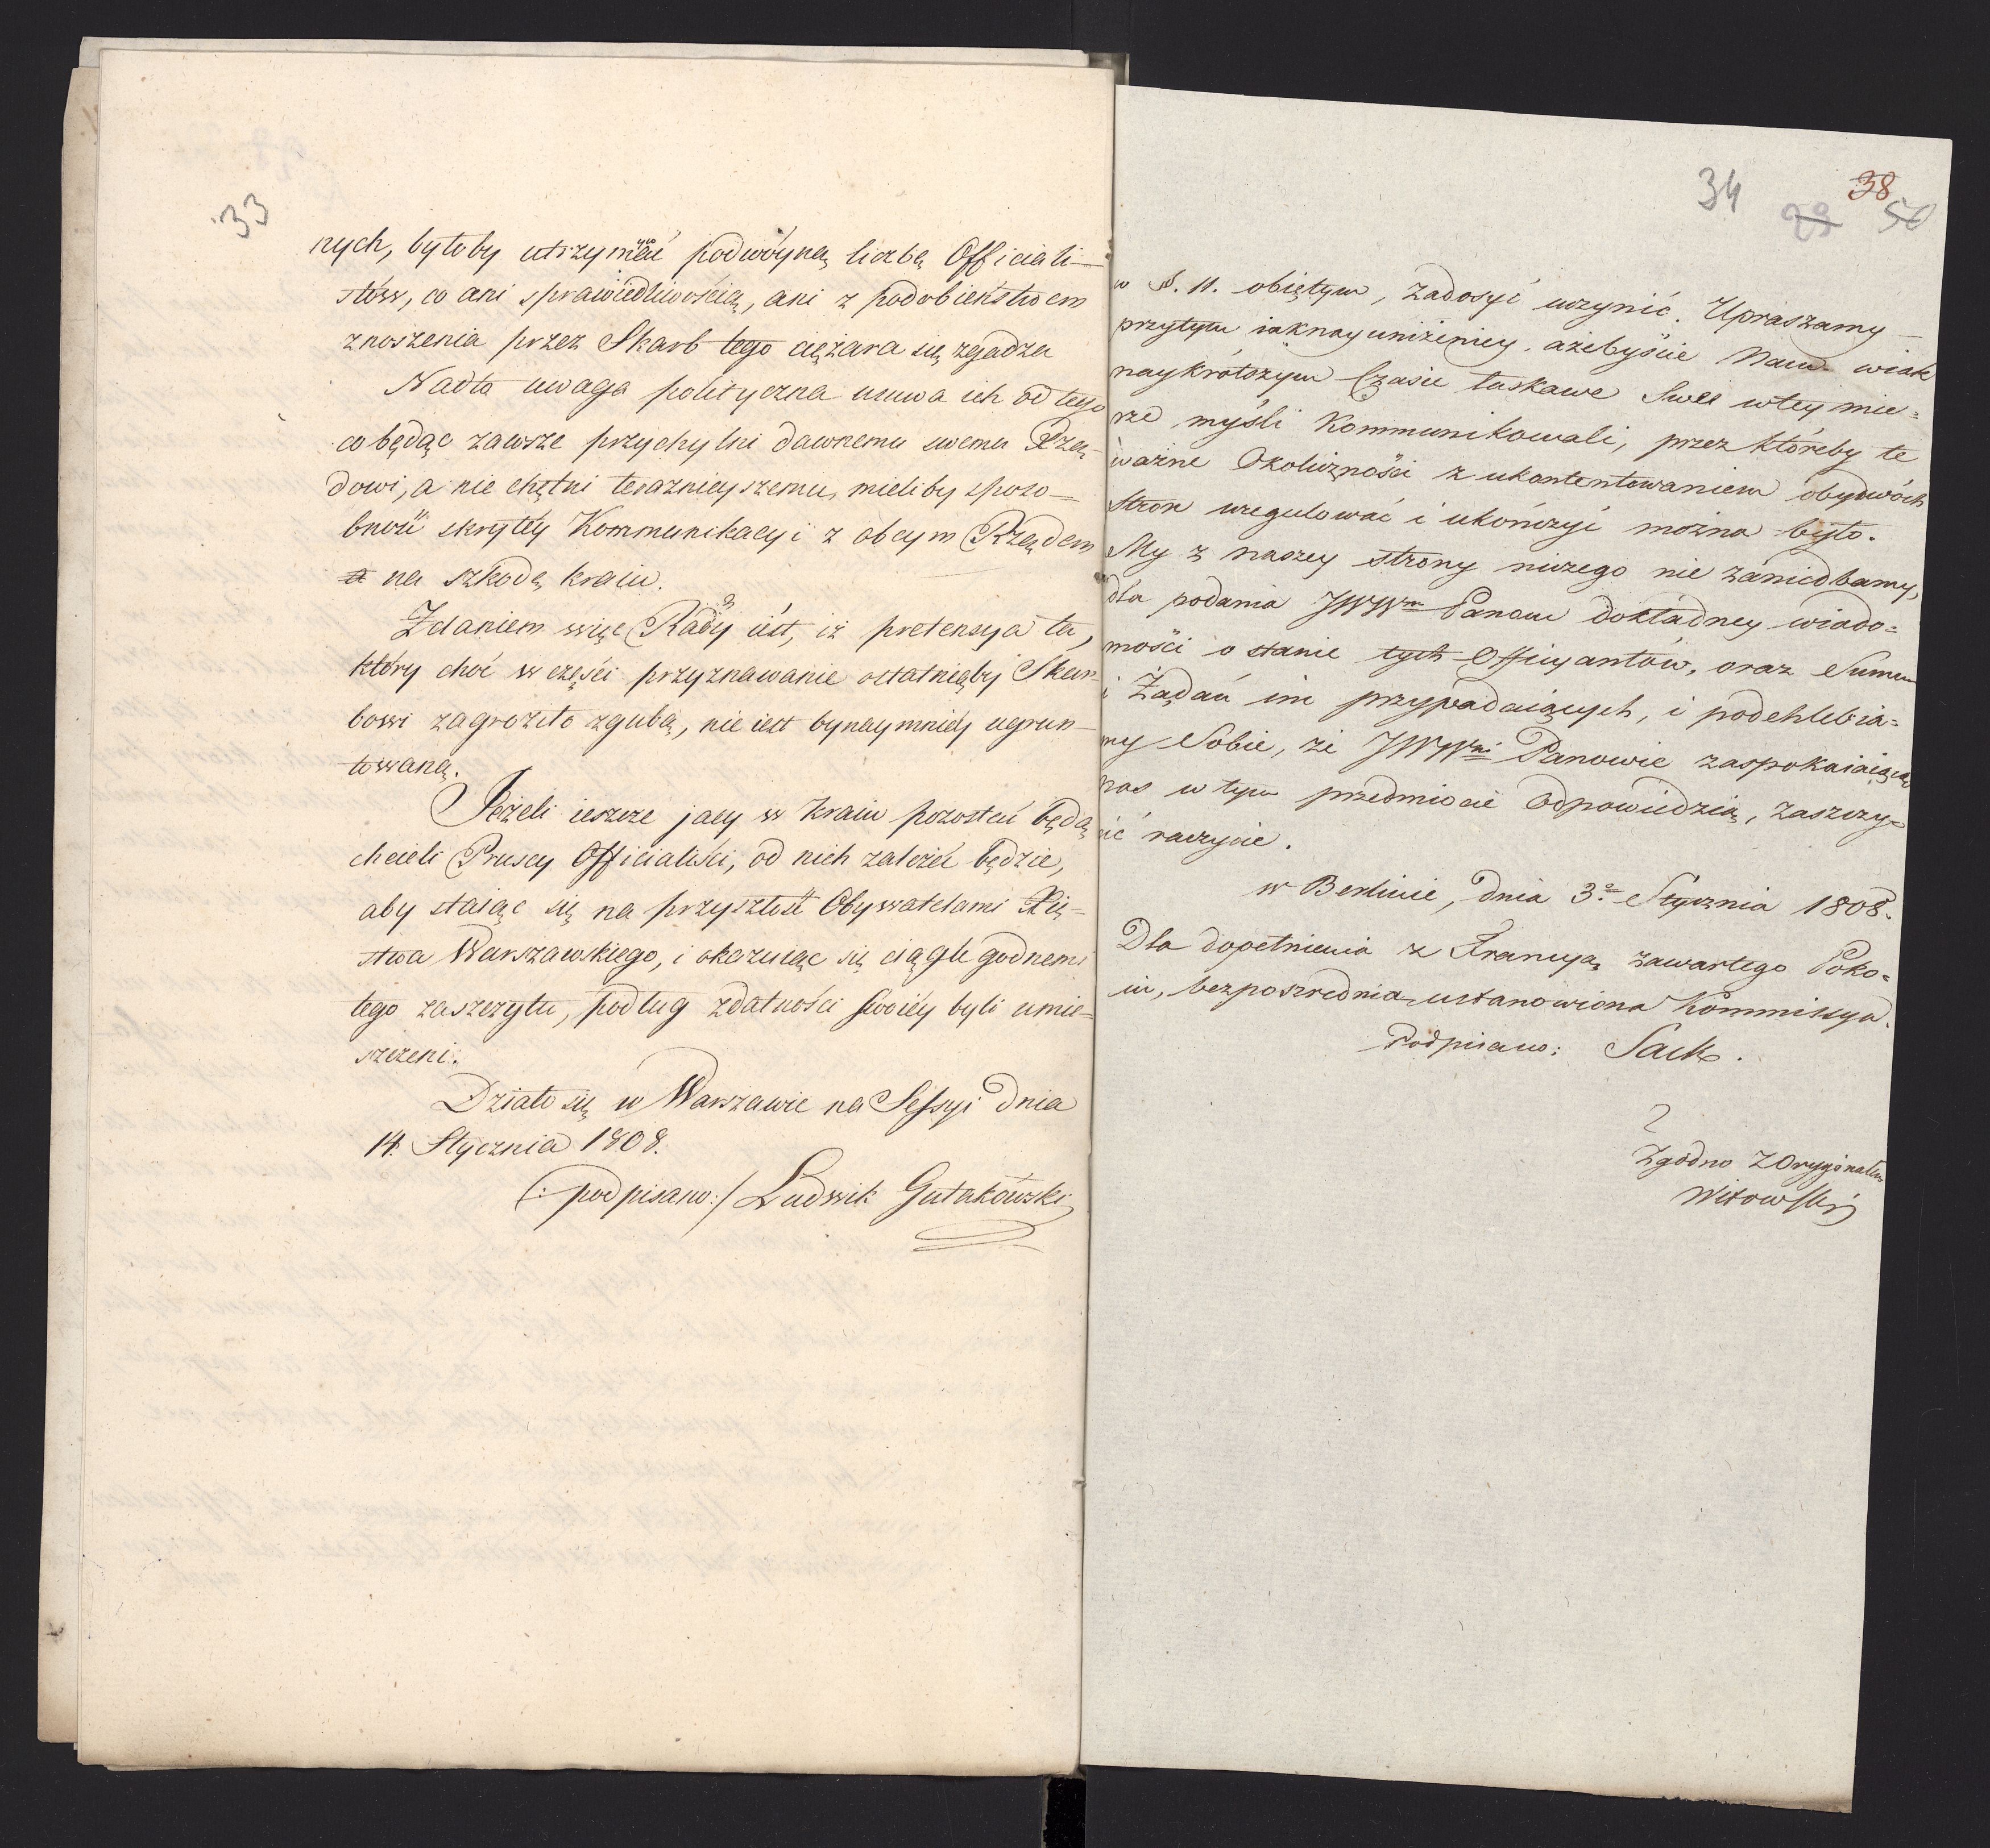 33
nych, byłoby utrzymać podwóyną liczbę Officiali-
stów, co ani sprawiedliwością, ani z podobieństwem
znoszenia przez Skarb tego ciężara się zgadza
Nadto uwaga polityczna usuwa ich od tego
co będąc zawsze przychylni dawnemu swemu Rzą-
dowi, a nie chętni teraznieyszemu, mieliby sposo-
bność skrytéy Kommunikacyi z obcym Rządem
na szkodę kraiu.
Zdaniem więc Rady iest, iż pretensya ta,
któréy choć w części przyznawanie ostatniąby Skar-
bowi zagroziło zgubą, nie iest bynaymniéy ugrun-
towaną.
Jeżeli ieszcze jacy w kraiu pozostać będą
chcieli Pruscy Officialiści, od nich zależeć będzie,
aby staiąc się na przyszłość Obywatelami Xię-
stwa Warszawskiego, i okazuiąc się ciągle godnemi
tego zaszczytu, podług zdatności swoiéy byli umie-
szczeni.
Działo się w Warszawie na Sessyi dnia
14. Stycznia 1808.
(: podpisano :/ Ludwik Gutakowski
34
38
29
50
w §. 11. obiętym, zadosyć uczynić. Upraszamy
przytym iaknayuniżeniey, ażebyście Nam wiak
naykrótszym Czasie łaskawe Swei wtey mie=
rze myśli Kommunikowali, przez któreby te
ważne Okoliczności z ukontentowaniem obydwóch
Stron uregulować i ukończyć można było.
My z naszey strony niczego nie zaniedbamy,
dla podania JWWm Panom dokładney wiado=
mości o stanie tych Officyantów, oraz Summ
i Żądań im przypadaiących, i podchlebia=
my Sobie, że JWWni Panowie zaspokaiaiącą
nas w tym przedmiocie Odpowiedzią, zaszczy=
cić raczycie.
w Berlinie, dnia 3.o Stycznia 1808.
Dla dopełnienia z Francyą zawartego Poko=
iu, bezposzrednia ustanowiona Kommissya.
Podpisano: Sack.
Zgodno z Oryginałem
Witowski